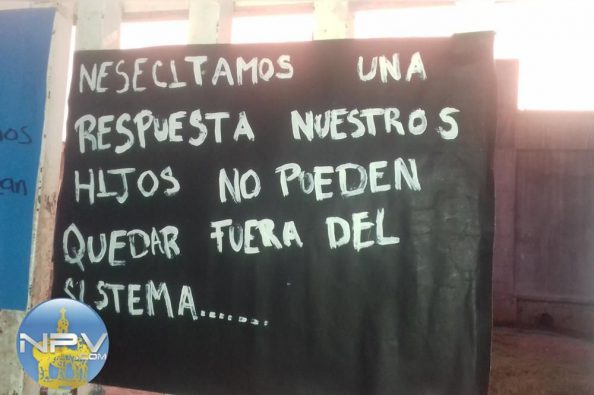 NESECITAMOS UNA
RESPUESTA NUESTROS
HIJOS NO PUEDEN
QUEDAR FUERA DEL
SISTEMA........
NPV
.COM